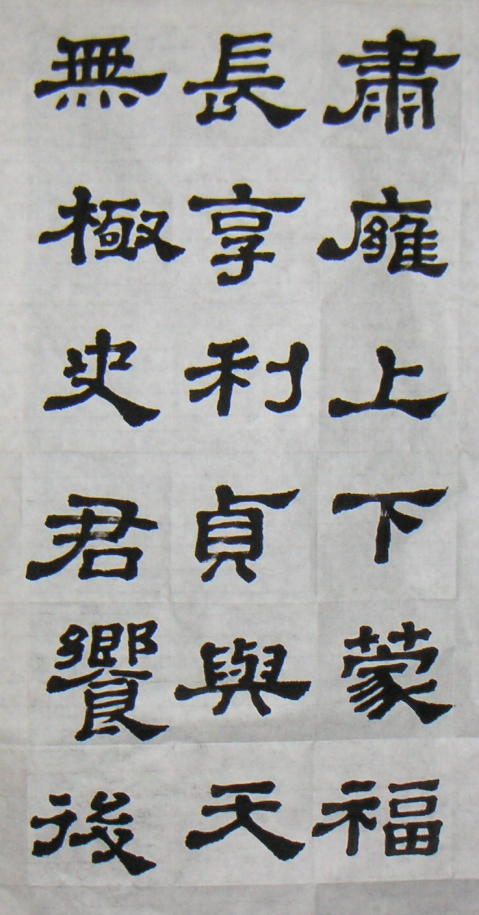 肅雍上下蒙福
長享利貞與天
無極史君饗後